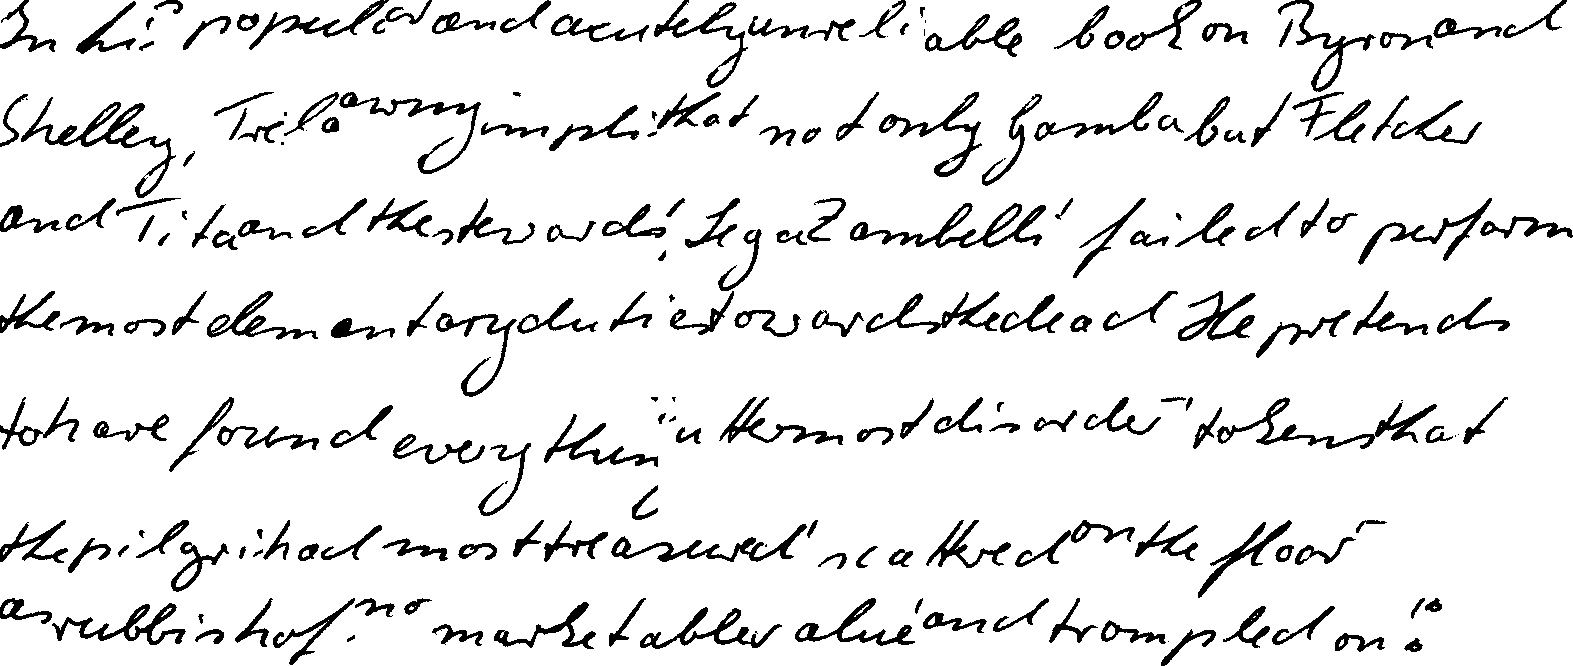 In his popular and acutely unreliable book on Byron and
Shelley, Trelawny implis that not only Gamba but Fletcher
and Tita and the steward, Lega Zambelli failed to perform
the most elementary duties towards the dead He pretends
to have found everything uttermost disorder tokens that
the pilgri had most treasured scattered on the floor
as rubbish of no marketable value and trampled on